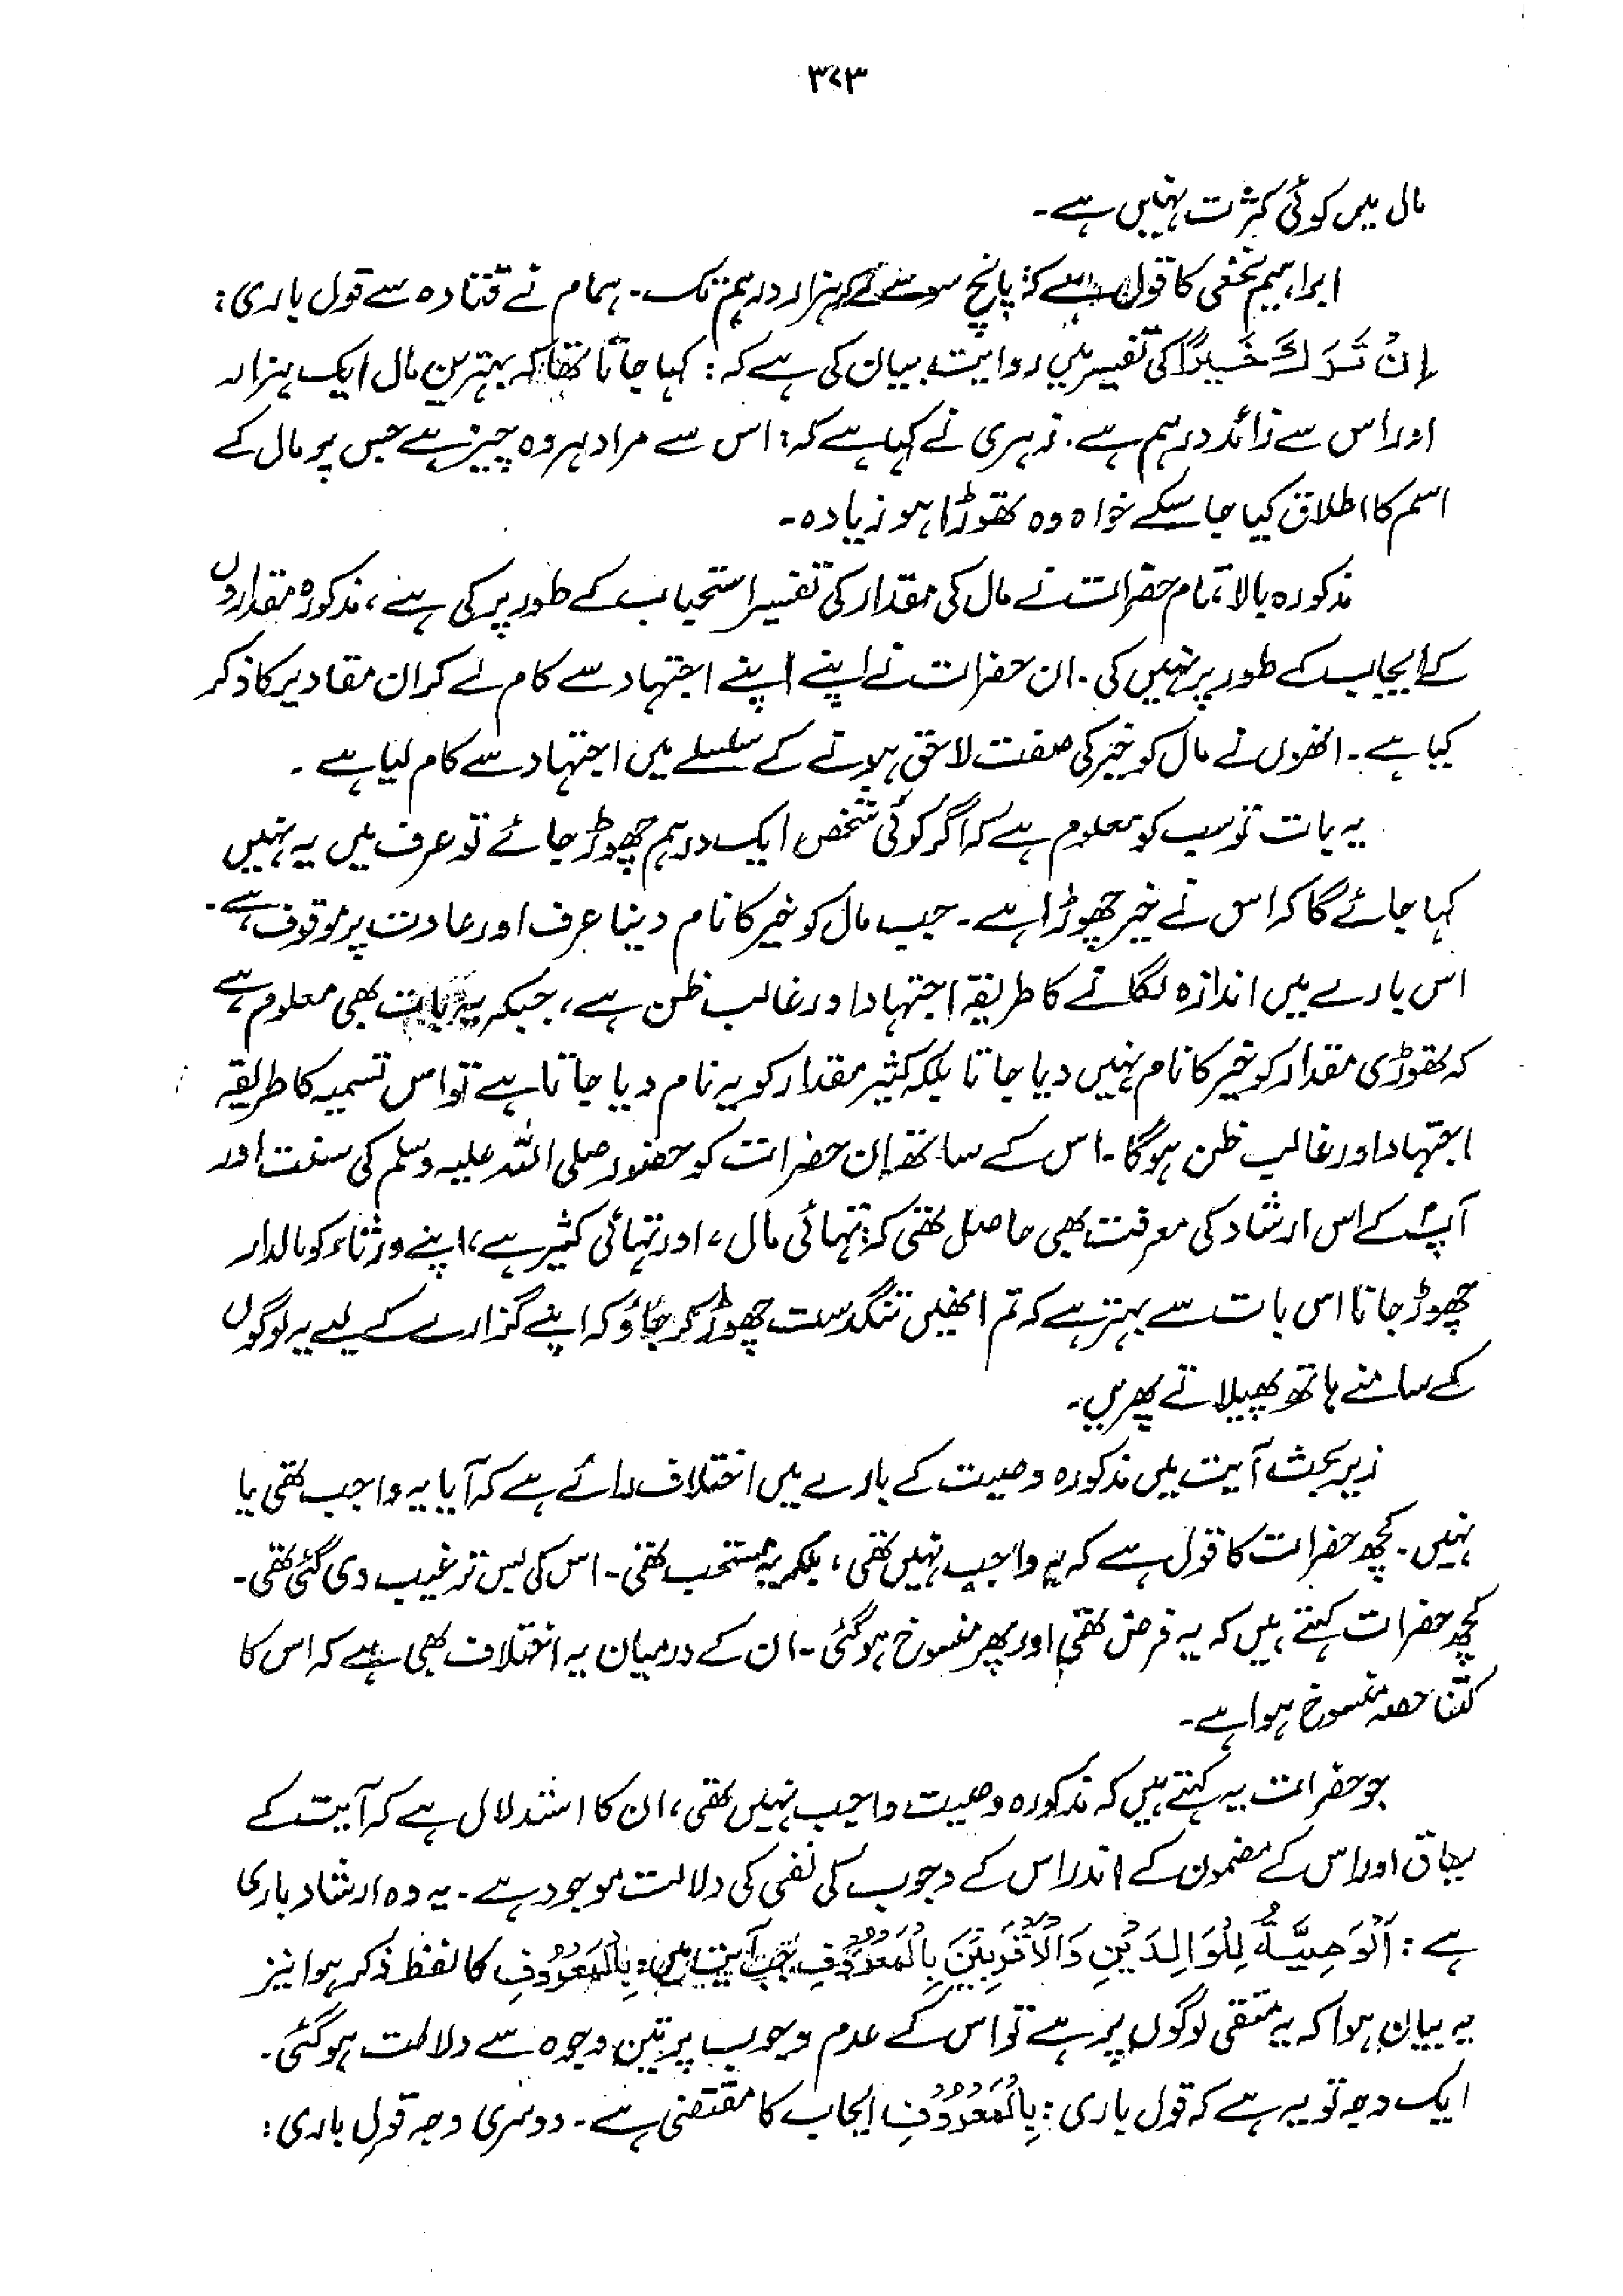 ۳۷۳
مال میں کوئی کثرت نہیں ہے۔
ابراہیم نخعی کا قول ہے کہ: پانچ سو سے لے کر ہزار درہم تک۔ ہمام نے قتادہ سے قول باری:
اِنْ تَرَكَ خَيْرًا کی تفسیر میں روایت بیان کی ہے کہ: کہا جاتا تھا کہ بہترین مال ایک ہزار
اور اس سے زائد درہم ہے۔ زہری نے کہا ہے کہ: اس سے مراد ہر وہ چیز ہے جس پر مال کے
اسم کا اطلاق کیا جا سکے خواہ وہ تھوڑا ہو زیادہ۔
مذکورہ بالا تمام حضرات نے مال کی مقدار کی تفسیر استحباب کے طور پر کی ہے، مذکورہ مقداروں
کے ایجاب کے طور پر نہیں کی۔ ان حضرات نے اپنے اپنے اجتہاد سے کام لے کر ان مقادیر کا ذکر
کیا ہے۔ انھوں نے مال کو خیر کی صفت لاحق ہونے کے سلسلے میں اجتہاد سے کام لیا ہے۔
یہ بات تو سب کو معلوم ہے کہ اگر کوئی شخص ایک درہم چھوڑ جائے تو عرف میں یہ نہیں
کہا جائے گا کہ اس نے خیر چھوڑا ہے۔ جب مال کو خیر کا نام دینا عرف اور عادت پر موقوف ہے۔
اس بارے میں اندازہ لگانے کا طریقہ اجتہاد اور غالب ظن ہے، جبکہ یہ بات بھی معلوم ہے
کہ تھوڑی مقدار کو خیر کا نام نہیں دیا جاتا بلکہ کثیر مقدار کو یہ نام دیا جاتا ہے تو اس تسمیہ کا طریقہ
اجتہاد اور غالب ظن ہوگا۔ اس کے ساتھ ان حضرات کو حضور صلی اللہ علیہ وسلم کی سنت اور
آپؐ کے اس ارشاد کی معرفت بھی حاصل تھی کہ: تہائی مال، اور تہائی کثیر ہے، اپنے ورثاء کو مالدار
چھوڑ جانا اس بات سے بہتر ہے کہ تم انھیں تنگدست چھوڑ کر جاؤ کہ اپنے گزارے کے لیے یہ لوگوں
کے سامنے ہاتھ پھیلاتے پھریں۔
زیر بحث آیت میں مذکورہ وصیت کے بارے میں اختلاف رائے ہے کہ آیا یہ واجب تھی یا
نہیں۔ کچھ حضرات کا قول ہے کہ یہ واجب نہیں تھی، بلکہ یہ مستحب تھی۔ اس کی بس ترغیب دی گئی تھی۔
کچھ حضرات کہتے ہیں کہ یہ فرض تھی اور پھر منسوخ ہو گئی۔ ان کے درمیان یہ اختلاف بھی ہے کہ اس کا
کتنا حصہ منسوخ ہوا ہے۔
جو حضرات یہ کہتے ہیں کہ مذکورہ وصیت واجب نہیں تھی، ان کا استدلال ہے کہ آیت کے
سیاق اور اس کے مضمون کے اندر اس کے وجوب کی نفی کی دلالت موجود ہے۔ یہ وہ ارشاد باری
ہے: اَلْوَصِيَّةُ لِلْوَالِدَيْنِ وَالْاَقْرَبِيْنَ بِالْمَعْرُوْفِ جب آیت میں: بِالْمَعْرُوْفِ کا لفظ ذکر ہوا نیز
یہ بیان ہوا کہ یہ متقی لوگوں پر ہے تو اس کے عدم وجوب پر تین وجوہ سے دلالت ہو گئی۔
ایک وجہ تو یہ ہے کہ قول باری: بِالْمَعْرُوْفِ ایجاب کا مقتضی ہے۔ دوسری وجہ قول باری: